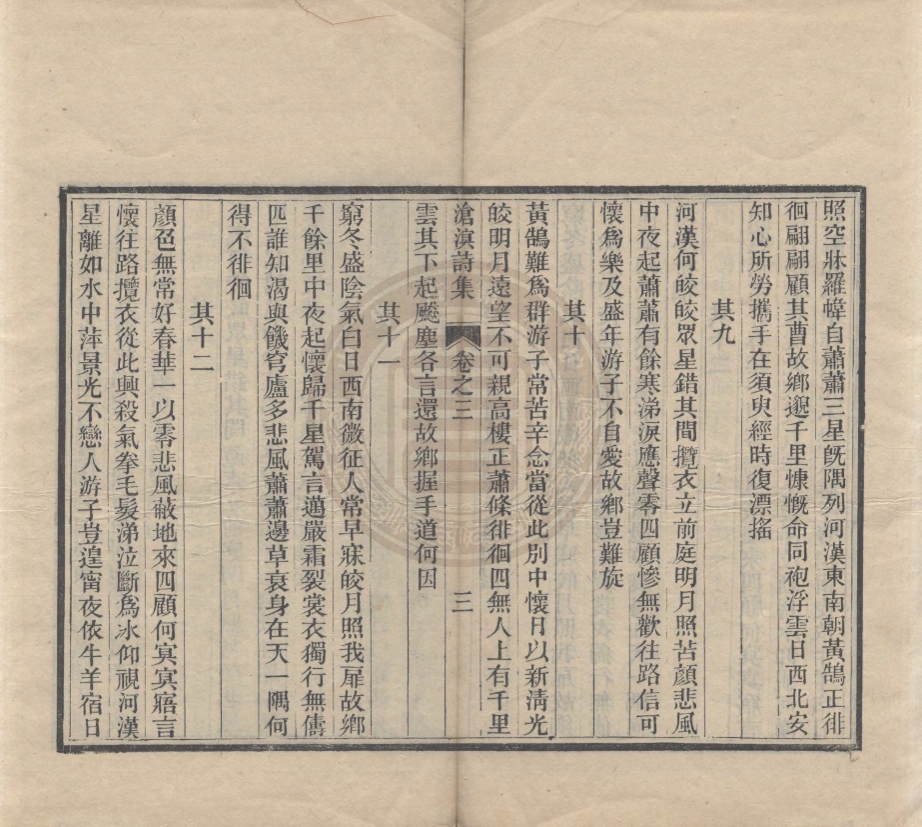 照空牀羅幃自蕭蕭三星旣隅列河漢東南朝黃鵠正徘
徊翩翩顧其曹故鄉邈千里慷慨命同袍浮雲日西北安
知心所勞攜手在須臾經時復漂搖
其九
河漢何皎皎眾星錯其間攬衣立前庭明月照苦顏悲風
中夜起蕭蕭有餘寒涕淚應聲零四顧慘無歡往路信可
懷爲樂及盛年游子不自愛故鄉豈難旋
其十
黃鵠難爲群游子常苦辛念當從此別中懷日以新淸光
皎明月遠望不可親高樓正蕭條徘徊四無人上有千里
滄溟詩集 卷之三 三
雲其下起飈塵各言還故鄉握手道何因
其十一
窮冬盛陰氣白日西南微征人常早寐皎月照我扉故鄉
千餘里中夜起懷歸千星駕言邁嚴霜裂裳衣獨行無儔
匹誰知渴與饑穹廬多悲風蕭蕭邊草衰身在天一隅何
得不徘徊
其十二
顏色無常好春華一以零悲風蔽地來四顧何冥冥寤言
懷往路攬衣從此興殺氣拳毛髮涕泣斷爲冰仰視河漢
星離如水中萍景光不戀人游子豈遑甯夜依牛羊宿日